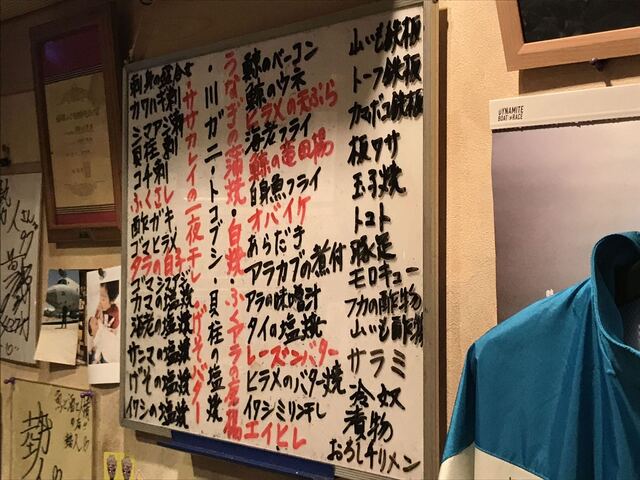 山いも鉄板
トーフ鉄板
カマボコ鉄板
板ワサ
玉子焼
トコト
豚足
モロキュー
フカの酢物
山いも酢物
サラミ
冷奴
漬物
おろしチリメン
鯨のベーコン
鯨のウネ
ヒラメの天ぷら
海老フライ
鯨の竜田揚
白身魚フライ
オバイケ
あらだき
アラカブの煮付
アラの味噌汁
タイの塩焼
レーズンバター
ヒラメのバター焼
イワシミリン干し
エイヒレ
うなぎの蒲焼・白焼・ふくアラの唐揚
・川ガニ・トコブシ・貝在の塩焼
・ササカレイの一夜干し
げそバター
刺身の盛合せ
カワハギ刺
シマアジ刺
貝在刺
コチ刺
ふくさし
酢ガキ
ゴマヒラメ
タラの白子
カマの塩焼
海老の塩焼
サンマの塩焼
げその塩焼
イワシの塩焼
DYNAMITE
BOAT RACE